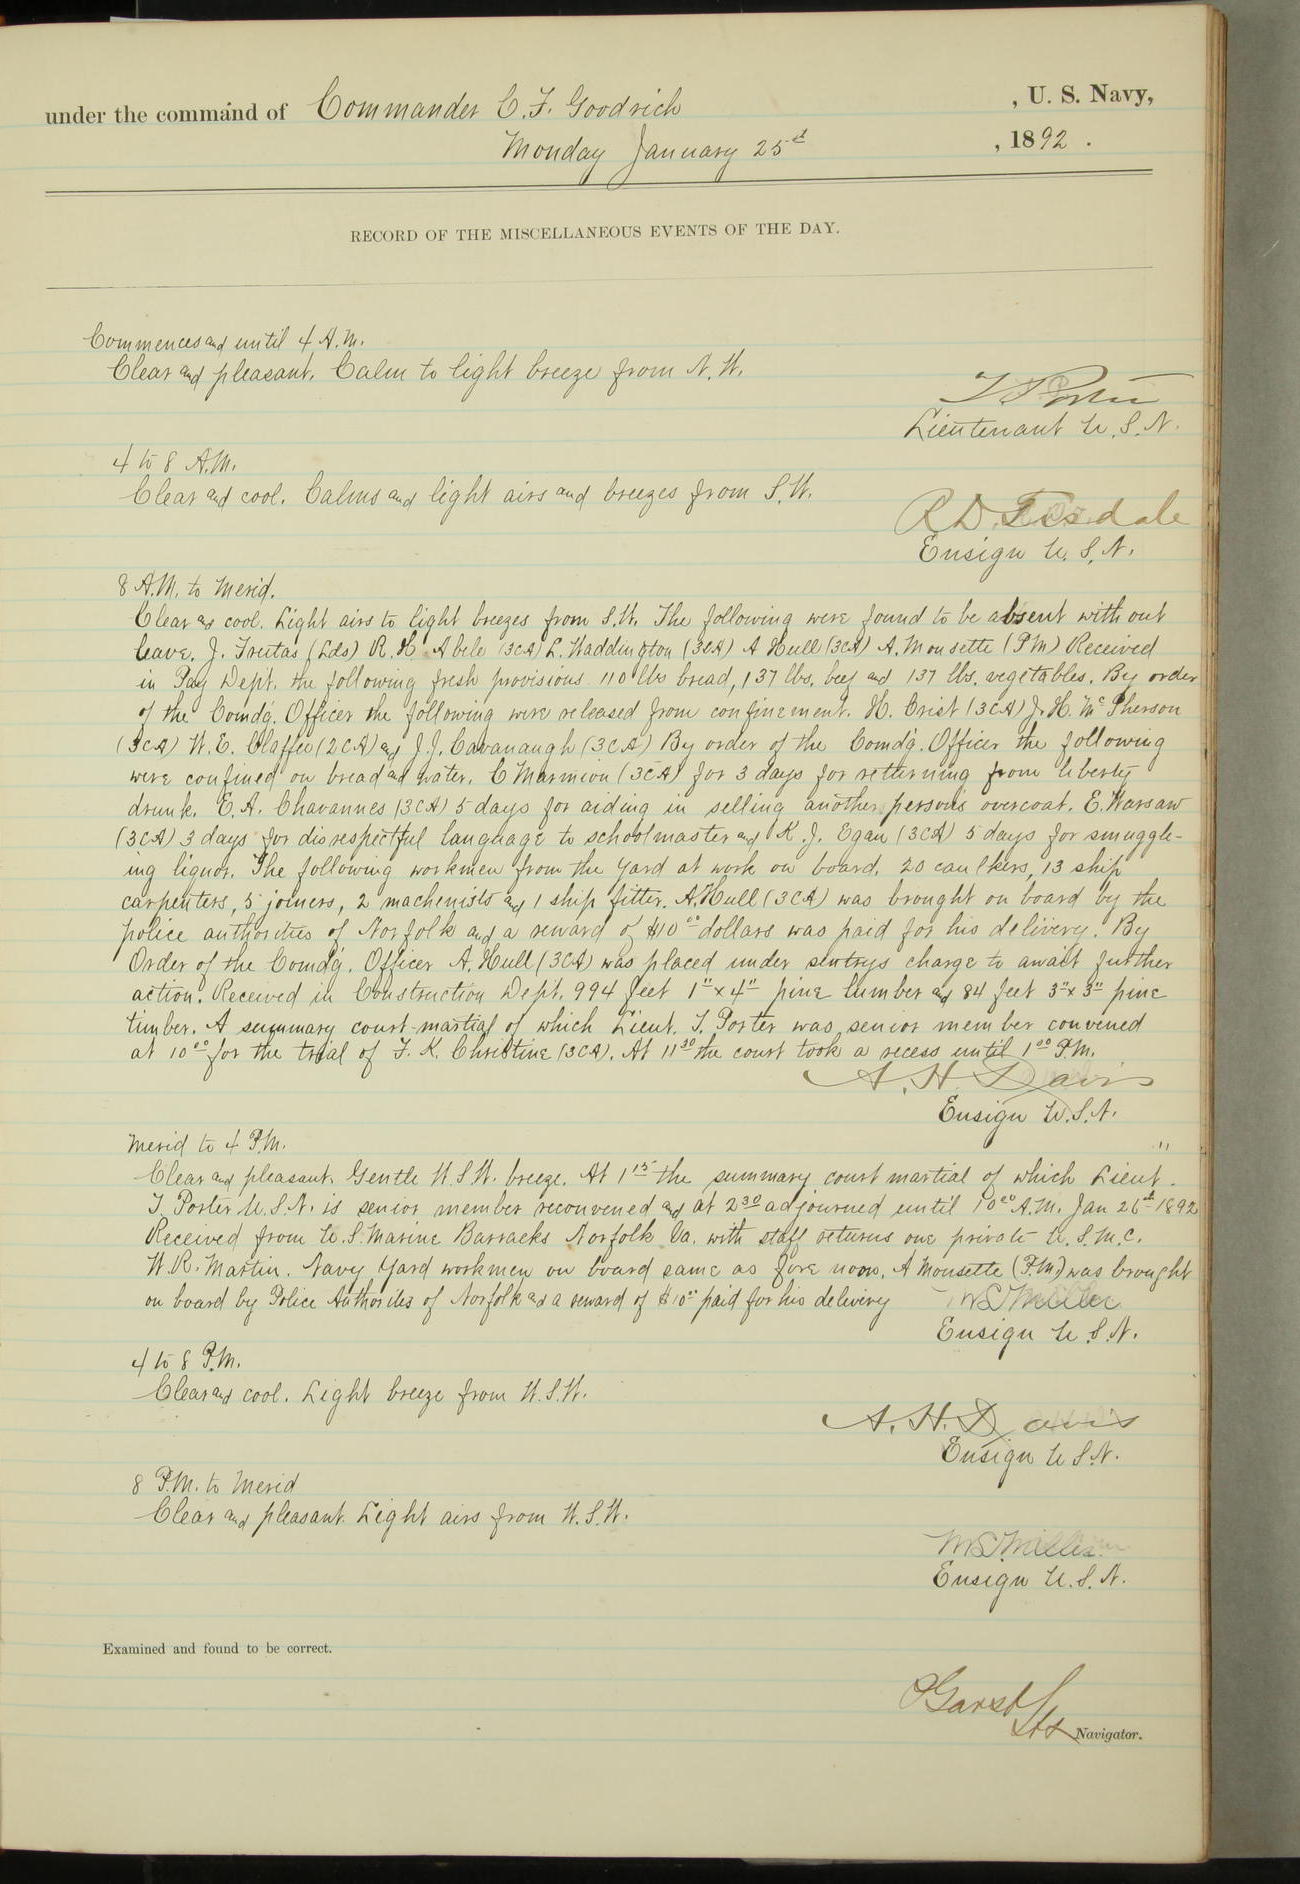 under the command of Commander C. F. Goodrich , U. S. Navy,
Monday January 25th , 1892 .
RECORD OF THE MISCELLANEOUS EVENTS OF THE DAY.
Commences and until 4 A.M.
Clear and pleasant. Calm to light breeze from N.W.
T Porter
Lieutenant U.S.N.
4 to 8 A.M.
Clear and cool. Calms and light airs and breezes from S.W.
R D. Tisdale
Ensign U.S.N.
8 A.M. to Merid.
Clear and cool. Light airs to light breezes from S.W. The following were found to be absent with out
leave. J. Freitas (Lds) R. H. Abele (3CA) L. Waddington (3CA) A Hull (3CA) A. Mousette (PM) Received
in Pay Dept. the following fresh provisions 110 lbs bread, 137 lbs. beef and 137 lbs. vegetables. By order
of the Comdg. Officer the following were released from confinement. H. Crist (3CA) J. H. McPherson
(3CA) W. E. Claffee (2CA) and J. J. Cavanaugh (3CA) By order of the Comdg. Officer the following
were confined on bread and water. C Marmion (3CA) for 3 days for returning from liberty
drunk. E. A. Chavannes (3CA) 5 days for aiding in selling another persons overcoat. E. Warsaw
(3CA) 3 days for disrespectful language to schoolmaster and K. J. Egan (3CA) 5 days for smuggle-
ing liquor. The following workmen from the yard at work on board. 20 caulkers, 13 ship
carpenters, 5 joiners, 2 machenists and 1 ship fitter. A. Hull (3CA) was brought on board by the
police authorities of Norfolk and a reward of $10 00 dollars was paid for his delivery. By
Order of the Comdg. Officer A. Hull (3CA) was placed under sentrys charge to await further
action. Received in Construction Dept. 994 feet 1" x 4" pine lumber and 84 feet 3" x 3" pine
timber. A summary court-martial of which Lieut. T. Porter was senior member convened
at 10 00 for the trial of F. K. Christine (3CA). At 11 30 the court took a recess until 1 00 P.M.
A. H. Davis
Ensign U.S.N.
Merid to 4 P.M.
Clear and pleasant. Gentle W.S.W. breeze. At 1 15 the summary court martial of which Lieut.
T. Porter U.S.N. is senior member reconvened and at 2 30 adjourned until 10 00 A.M. Jan 26th 1892
Received from U.S. Marine Barracks Norfolk Va. with staff returns one private U.S.M.C.
W. R. Martin. Navy Yard workmen on board same as fore noon. A Mousette (P.M.) was brought
on board by Police Authorites of Norfolk and a reward of $10 00 paid for his delivery
Ensign U.S.N.
4 to 8 P.M.
Clear and cool. Light breeze from W.S.W.
A. H. Davis
Ensign U.S.N.
8 P.M. to Merid
Clear and pleasant. Light airs from W.S.W.
Ensign U.S.N.
Examined and found to be correct.
Garst
Navigator.